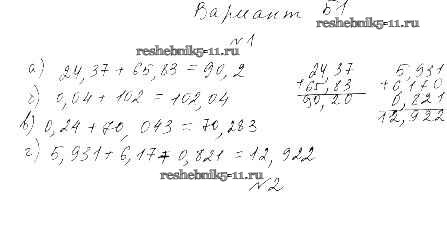 Вариант Б1
reshebnik5-11.ru
№1
reshebnik5-11.ru
а) 24,37 + 65,83 = 90,2
б) 0,04 + 102 = 102,04
в) 0,24 + 70,043 = 70,283
г) 5,931 + 6,17 + 0,821 = 12,922
24,37
+65,83
90,20
5,931
+6,170
0,821
12,922
reshebnik5-11.ru
№2